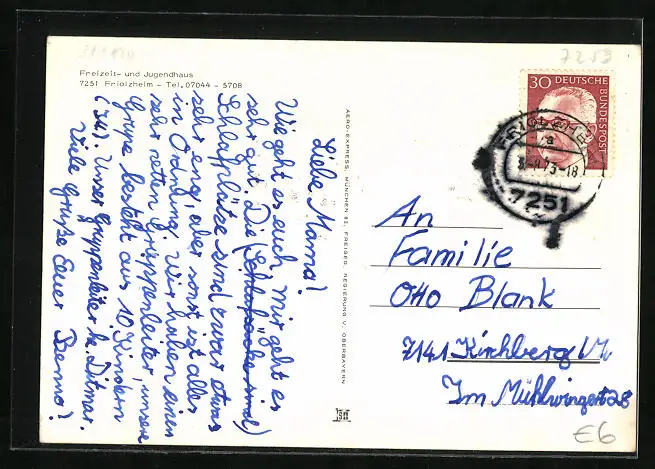 Freizeit- und Jugendhaus
7251 Friolzheim - Tel. 07044 - 5708
Liebe Mama!
Wie geht es euch, mir geht es
sehr gut. Die (Schlafsäcke sind)
Schlafplätze sind zwar etwas
sehr eng, aber sonst ist alles
in Ordnung. Wir haben einen
sehr netten Gruppenleiter, unsere
Grupe besteht aus 10 Kindern
(Ju). Unser Gruppenleiter h. Ditmar.
Viele Grüße Euer Benno!
AERO-EXPRESS, MÜNCHEN 82, FREIGEG. REGIERUNG V. OBERBAYERN
7253
30 DEUTSCHE
BUNDESPOST
FRIOLZHEIM
a
73-18
7251
An
Familie
Otto Blank
7141 Kirchberg/M
Im Mühlwingert 28
€6